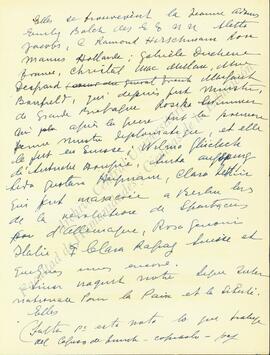 Elles se trouvaient là Jeanne Adams
Emily Balch des E E U U Aletta
Jacobs, C Ramond Hirschmann Rosa
Manus Hollande; Gabrielle Duchene
France, Christal Mac Millan, Mme
Despard Margaret
Bonfield, qui depuis fut Ministre
de Grande Bretagne Rosika Schwimmer
qui après la guerre fut la première
femme ministre diplomatique, et elle
le fut en Suisse; Wilma Glücklich
d'Autriche Hongrie Anita Augspurg
Lida Gustava Heymann, Clara
qui fut massacrée a Berlin lors
de la revolution de Spartacus
pour d'Allemagne, Rosa Genoni
Italie & Clara Ragaz Suisse et
quelques unes encore.
Ainsi naquit notre Ligue Inter
nationale pour la Paix et la Liberté.
Elles
(falta ps esta nota lo que
del Congreso de Zurich - copiarlo -